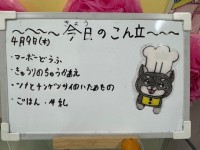 今日のこん立
きょう
4月9日(木)
・マーボーどうふ
・きゅうりのちゅうかあえ
・ツナとチンゲンサイのいためもの
・ごはん・牛乳